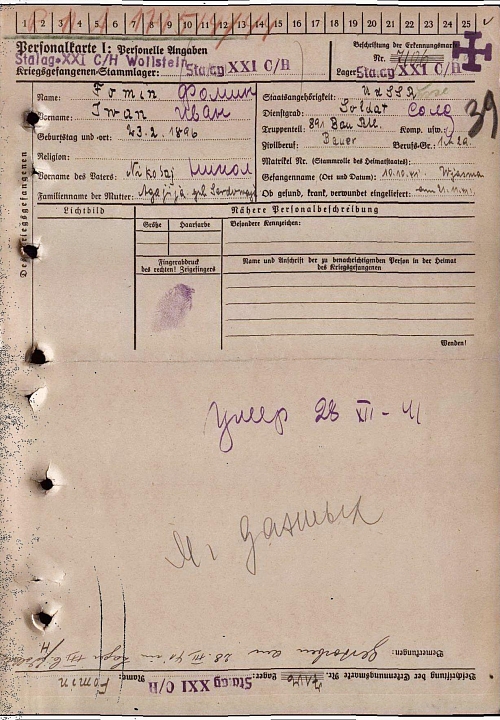 1 2 3 4 5 6 7 8 9 10 11 12 13 14 15 16 17 18 19 20 21 22 23 24 25
Personalkarte I: Personelle Angaben
Stalag XXI C/H Wollstein
Kriegsgefangenen-Stammlager: Stalag XXI C/H
Beschriftung der Erkennungsmarke
Nr. 7106
Lager: Stalag XXI C/H
39
Des Kriegsgefangenen
Name: Fomin Фомин
Vorname: Iwan Иван
Geburtstag und -ort: 23.2.1896
Religion:
Vorname des Vaters: Nikolaj
Familienname der Mutter:
Staatsangehörigkeit: UdSSR
Dienstgrad: Soldat солд
Truppenteil: 891 Bau Komp. usw.:
Zivilberuf: Bauer Berufs-Gr.:
Matrikel Nr. (Stammrolle des Heimatstaates):
Gefangennahme (Ort und Datum): 10.10.41 Wjasma
Ob gesund, krank, verwundet eingeliefert:
Lichtbild
Nähere Personalbeschreibung
Größe Haarfarbe
Besondere Kennzeichen:
Fingerabdruck
des rechten! Zeigefingers
Name und Anschrift der zu benachrichtigenden Person in der Heimat
des Kriegsgefangenen
Wenden!
Умер 28 XII - 41
Bemerkungen: Gestorben am 28. XII. 41 im Lager
Beschriftung der Erkennungsmarke Nr. 7106 Lager: Stalag XXI C/H
Name: Fomin